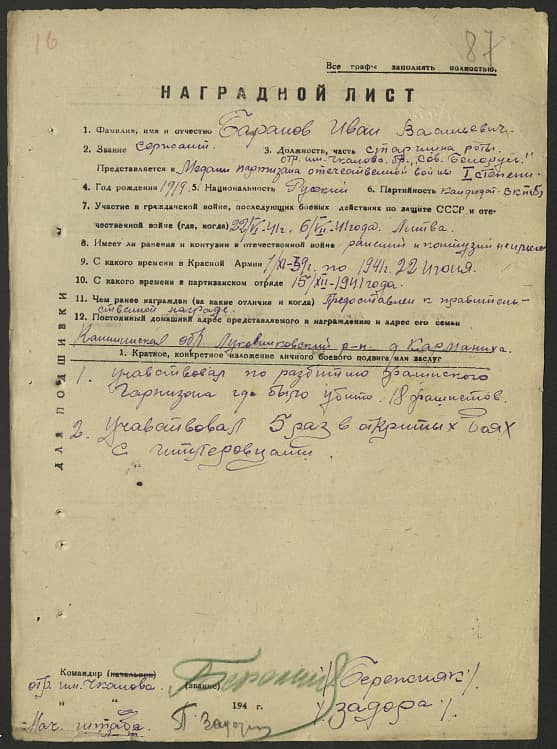 16
87
Все графы заполнять полностью.
НАГРАДНОЙ ЛИСТ
1. Фамилия, имя и отчество Баранов Иван Васильевич.
2. Звание Сержант. 3. Должность, часть старшина роты.
отр. им. Чкалова бр. „Сов. Белорус."
Представляется к Медали партизана отечественной войны I степени.
4. Год рождения 1919 5. Национальность Русский 6. Партийность кандидат ВКП(б)
7. Участие в гражданской войне, последующих боевых действиях по защите СССР и оте-
чественной войне (где, когда) 22/VI-41г. 6/VII-41 года. Литва.
8. Имеет ли ранения и контузии в отечественной войне ранений и контузий не имеет
9. С какого времени в Красной Армии 1/XI-39г. по 1941г. 22 Июня.
10. С какого времени в партизанском отряде 15/XII-1941 года.
11. Чем ранее награжден (за какие отличия и когда) Предоставлен к правитель-
ственной награде.
12. Постоянный домашний адрес представляемого к награждению и адрес его семьи
обл. р-н. д.
1. Краткое, конкретное изложение личного боевого подвига или заслуг
1. учавствовал по разбитию
гарнизона где было убито 18 фашистов.
2. Учавствовал 5 раз в открытых боях
с гитлеровцами.
ДЛЯ ПОДШИВКИ
Командир (начальник)
отр. им. Чкалова. (звание) /Бережняк/.
" " 194 г.
Нач. штаба. П Задора /Задора/.